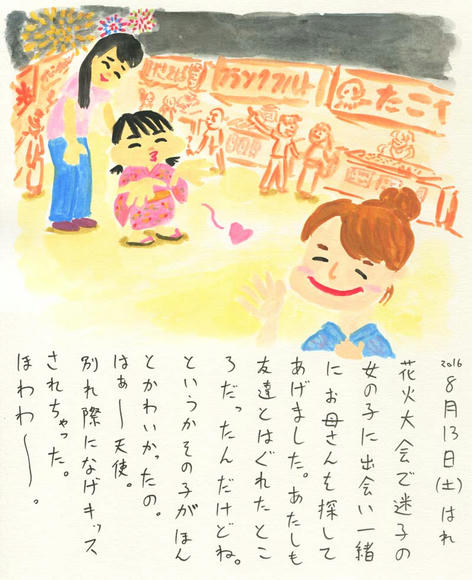 フランクフルト
たこ
2016 8月13日(土) はれ
花火大会で迷子の
女の子に出会い一緒
にお母さんを探して
あげました。あたしも
友達とはぐれたとこ
ろだったんだけどね。
というかその子がほん
とかわいかったの。
はぁ〜天使。
別れ際になげキッス
されちゃった。
ほわわ〜。